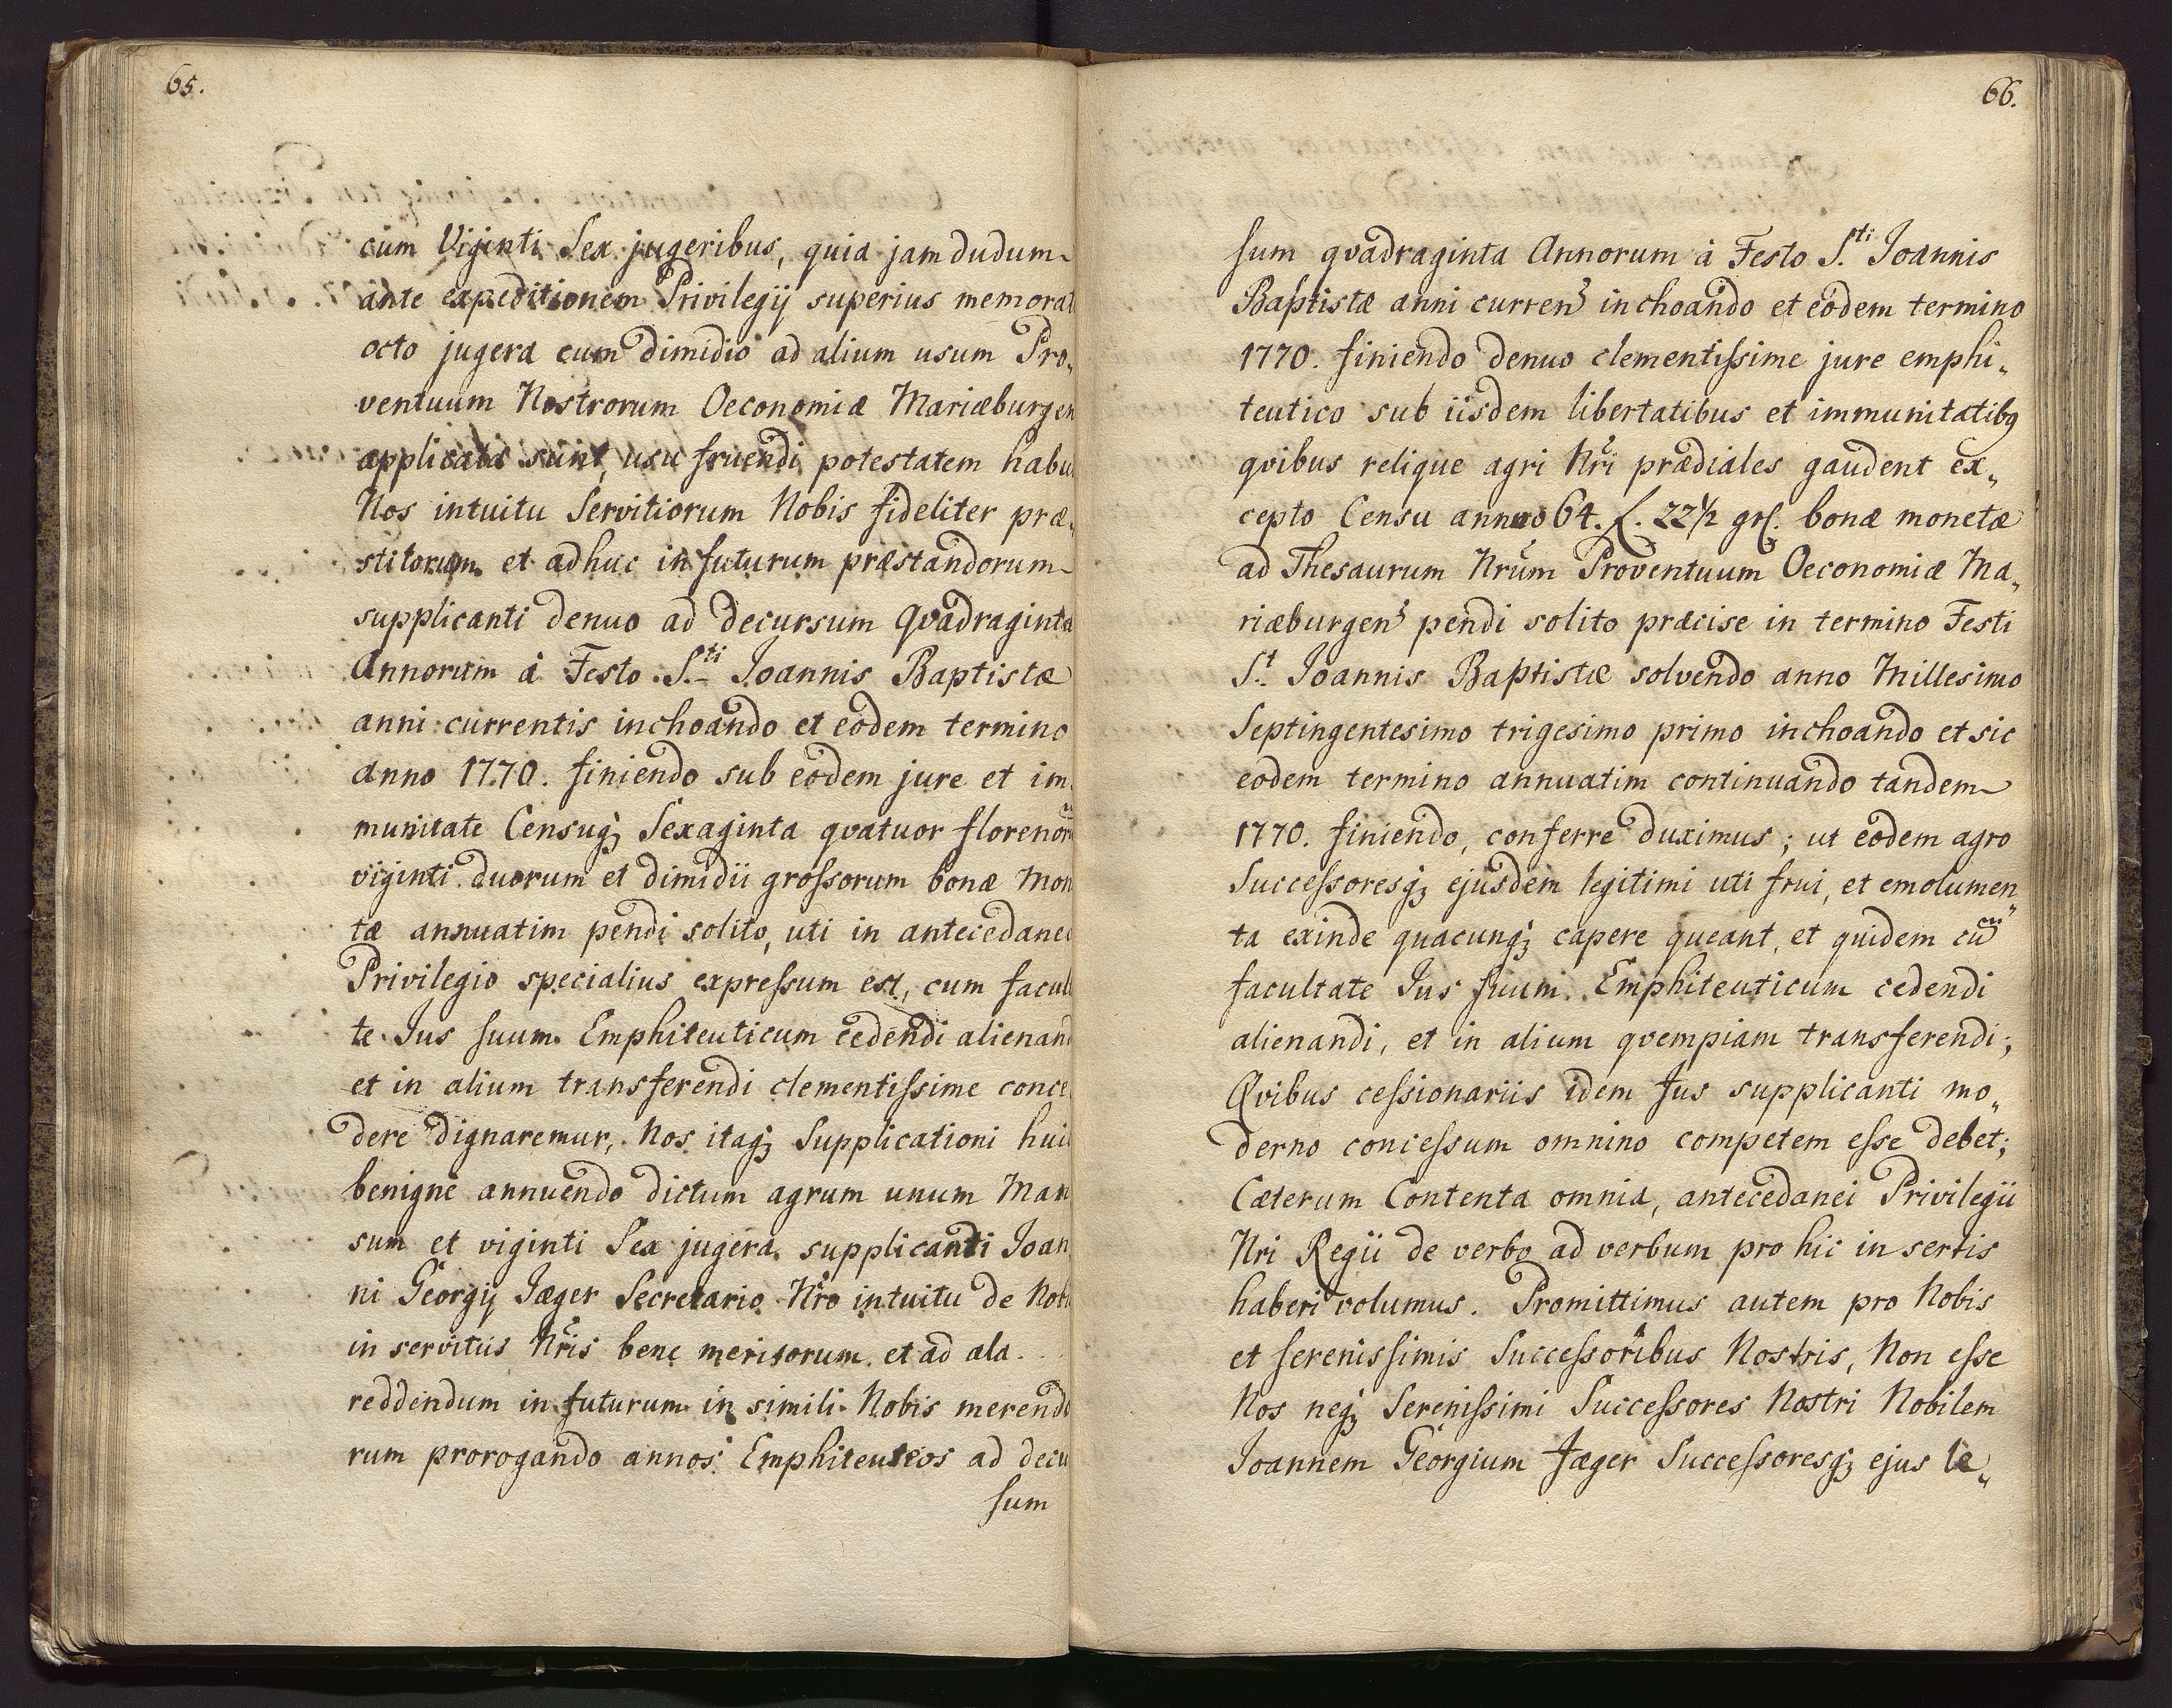 65.
cum Viginti Sex jugeribus, quia jam dudum
ante expeditionem Privilegij superius memorat
octo jugera cum dimidio ad alium usum Pro„
ventuum Nostrorum Oeconomiæ Mariæburgen
applicata sunt, usu fruendi potestatem habu
Nos intuitu Servitiorum Nobis fideliter præ„
stitorum et adhuc in futurum præstandorum
supplicanti denuo ad decursum Qvadraginta
Annorum à Festo S.ti Joannis Baptistæ
anni currentis inchoando et eodem termino
anno 1770. finiendo sub eodem jure et im
munitate Censuq; Sexaginta qvatuor florenor
viginti duorum et dimidii groſsorum bonæ Mon
tæ annuatim pendi solito, uti in antecedane
Privilegio specialius expreſsum est, cum facul
te Jus suum Emphiteuticum cedendi alienan
et in alium transferendi clementiſsime conce
dere dignaremur, Nos itaq; Supplicationi hui
benigne annuendo dictum agrum unum Man
sum et viginti Sex jugera supplicanti Joan
ni Georgij Jæger Secretario Nrõ intuitu de Nob
in servitiis Nrĩs bene meritorum et ad ala
reddendum in futurum in simili Nobis merend
rum prorogando annos Emphiteuticos ad decu
sum
66.
sum qvadraginta Annorum à Festo S.ti Joannis
Baptistæ anni curren3 inchoando et eodem termino
1770. finiendo denuo clementiſsime jure emphi„
teutico sub iisdem libertatibus et immunitatibq
qvibus relique agri Nrĩ prædiales gaudent ex„
cepto Censu annuo 64. f. 22½ grſ. bonæ monetæ
ad Thesaurum Nrũm Proventuum Oeconomiæ Ma„
riæburgen3 pendi solito præcise in termino Festi
S.t Joannis Baptistæ solvendo anno Millesimo
Septingentesimo trigesimo primo inchoando et sic
eodem termino annuatim continuando tandem
1770. finiendo, conferre duximus; ut eodem agro
Succeſsoresq; ejusdem legitimi uti frui, et emolumen„
ta exinde quacunq; capere queant, et quidem cũ
facultate Jus suum Emphiteuticum cedendi
alienandi, et in alium qvempiam transferendi;
Qvibus ceſsionariis idem Jus supplicanti mo„
derno conceſsum omnino competem eſse debet;
Cæterum Contenta omnia, antecedanei Privilegii
Nri Regii de verbo ad verbum pro hic insertis
haberi volumus. Promittimus autem pro Nobis
et serenissimis Succeſsoribus Nostris, Non eſse
Nos neq; Sereniſsimi Succeſsores Nostri Nobilem
Joannem Georgium Jæger Succeſsoresq; ejus le„